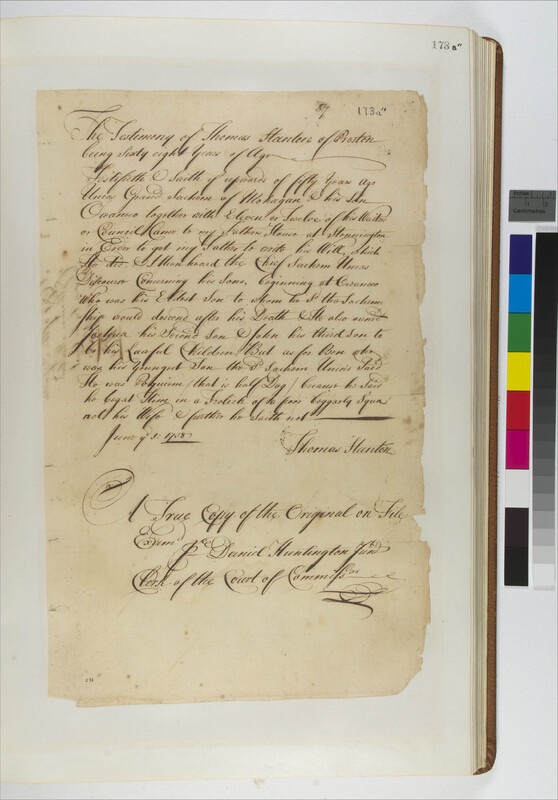 173 a"
173a"
The Testimony of Thomas Stanton of Preston
being Sixty eight Years of Age
Testifieth & Saith yt upwards of fifty Years Ago
Uncas Grand Sachem of Mohagan & his Son
Owaneco together with Eleven or Twelve of his
or Council Came to my Fathers House at Stonington
in Order to get my Father to write his Will, which
He did. & I then heard the Chief Sachem Uncas
Discourse Concerning his Sons, beginning at Owaneco
Who was his Eldest Son to whom he Sd the Sachem
ship would descend after his Death & He also own'd
Joshua his Second Son & John his third Son to
be his Lawful Children / But as for Ben who
was his Youngest Son the Sd Sachem Uncas Said
He was Poquiem / that is half Dog / because he Said
he begat Him in a Frolick of a poor beggarly Squa
not his Wife & further he Saith not
June ye 5. 1738
Thomas Stanton
A True Copy of the Original on File
Examd
Pr Daniel Huntington Jund
Clerk of the Court of Commissrs